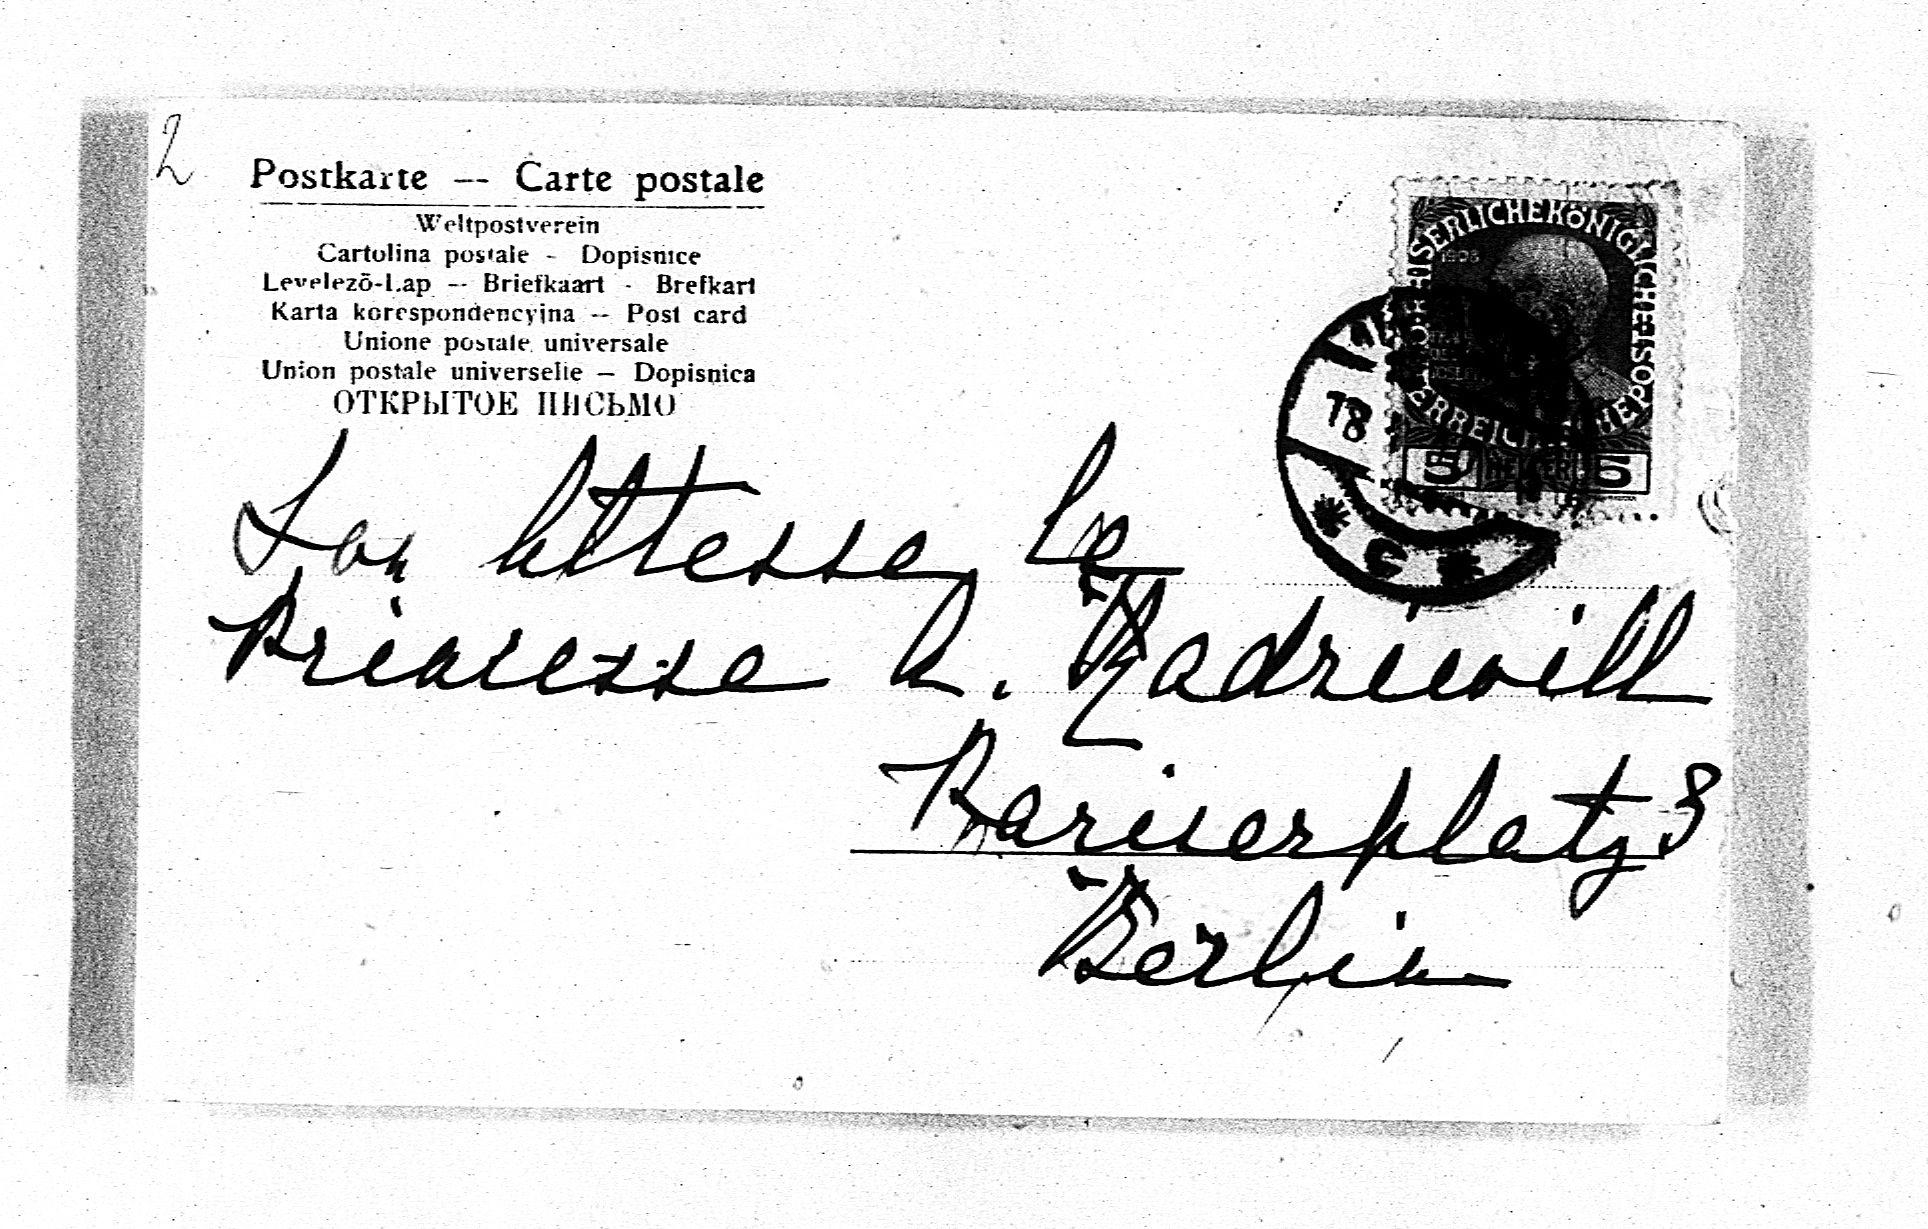 2
Postkarte — Carte postale
Weltpostverein
Cartolina postale - Dopisnice
Levelező-Lap — Briefkaart - Brefkart
Karta korespondencyjna — Post card
Unione postale universale
Union postale universelle — Dopisnica
ОТКРЫТОЕ ПИСЬМО
KAISERLICHE KÖNIGLICHE ÖSTERREICHISCHE POST
1908
5 HELLER 5
18
* C *
Son Altesse La
Princesse A. Radziwill
Pariserplatz 3
Berlin